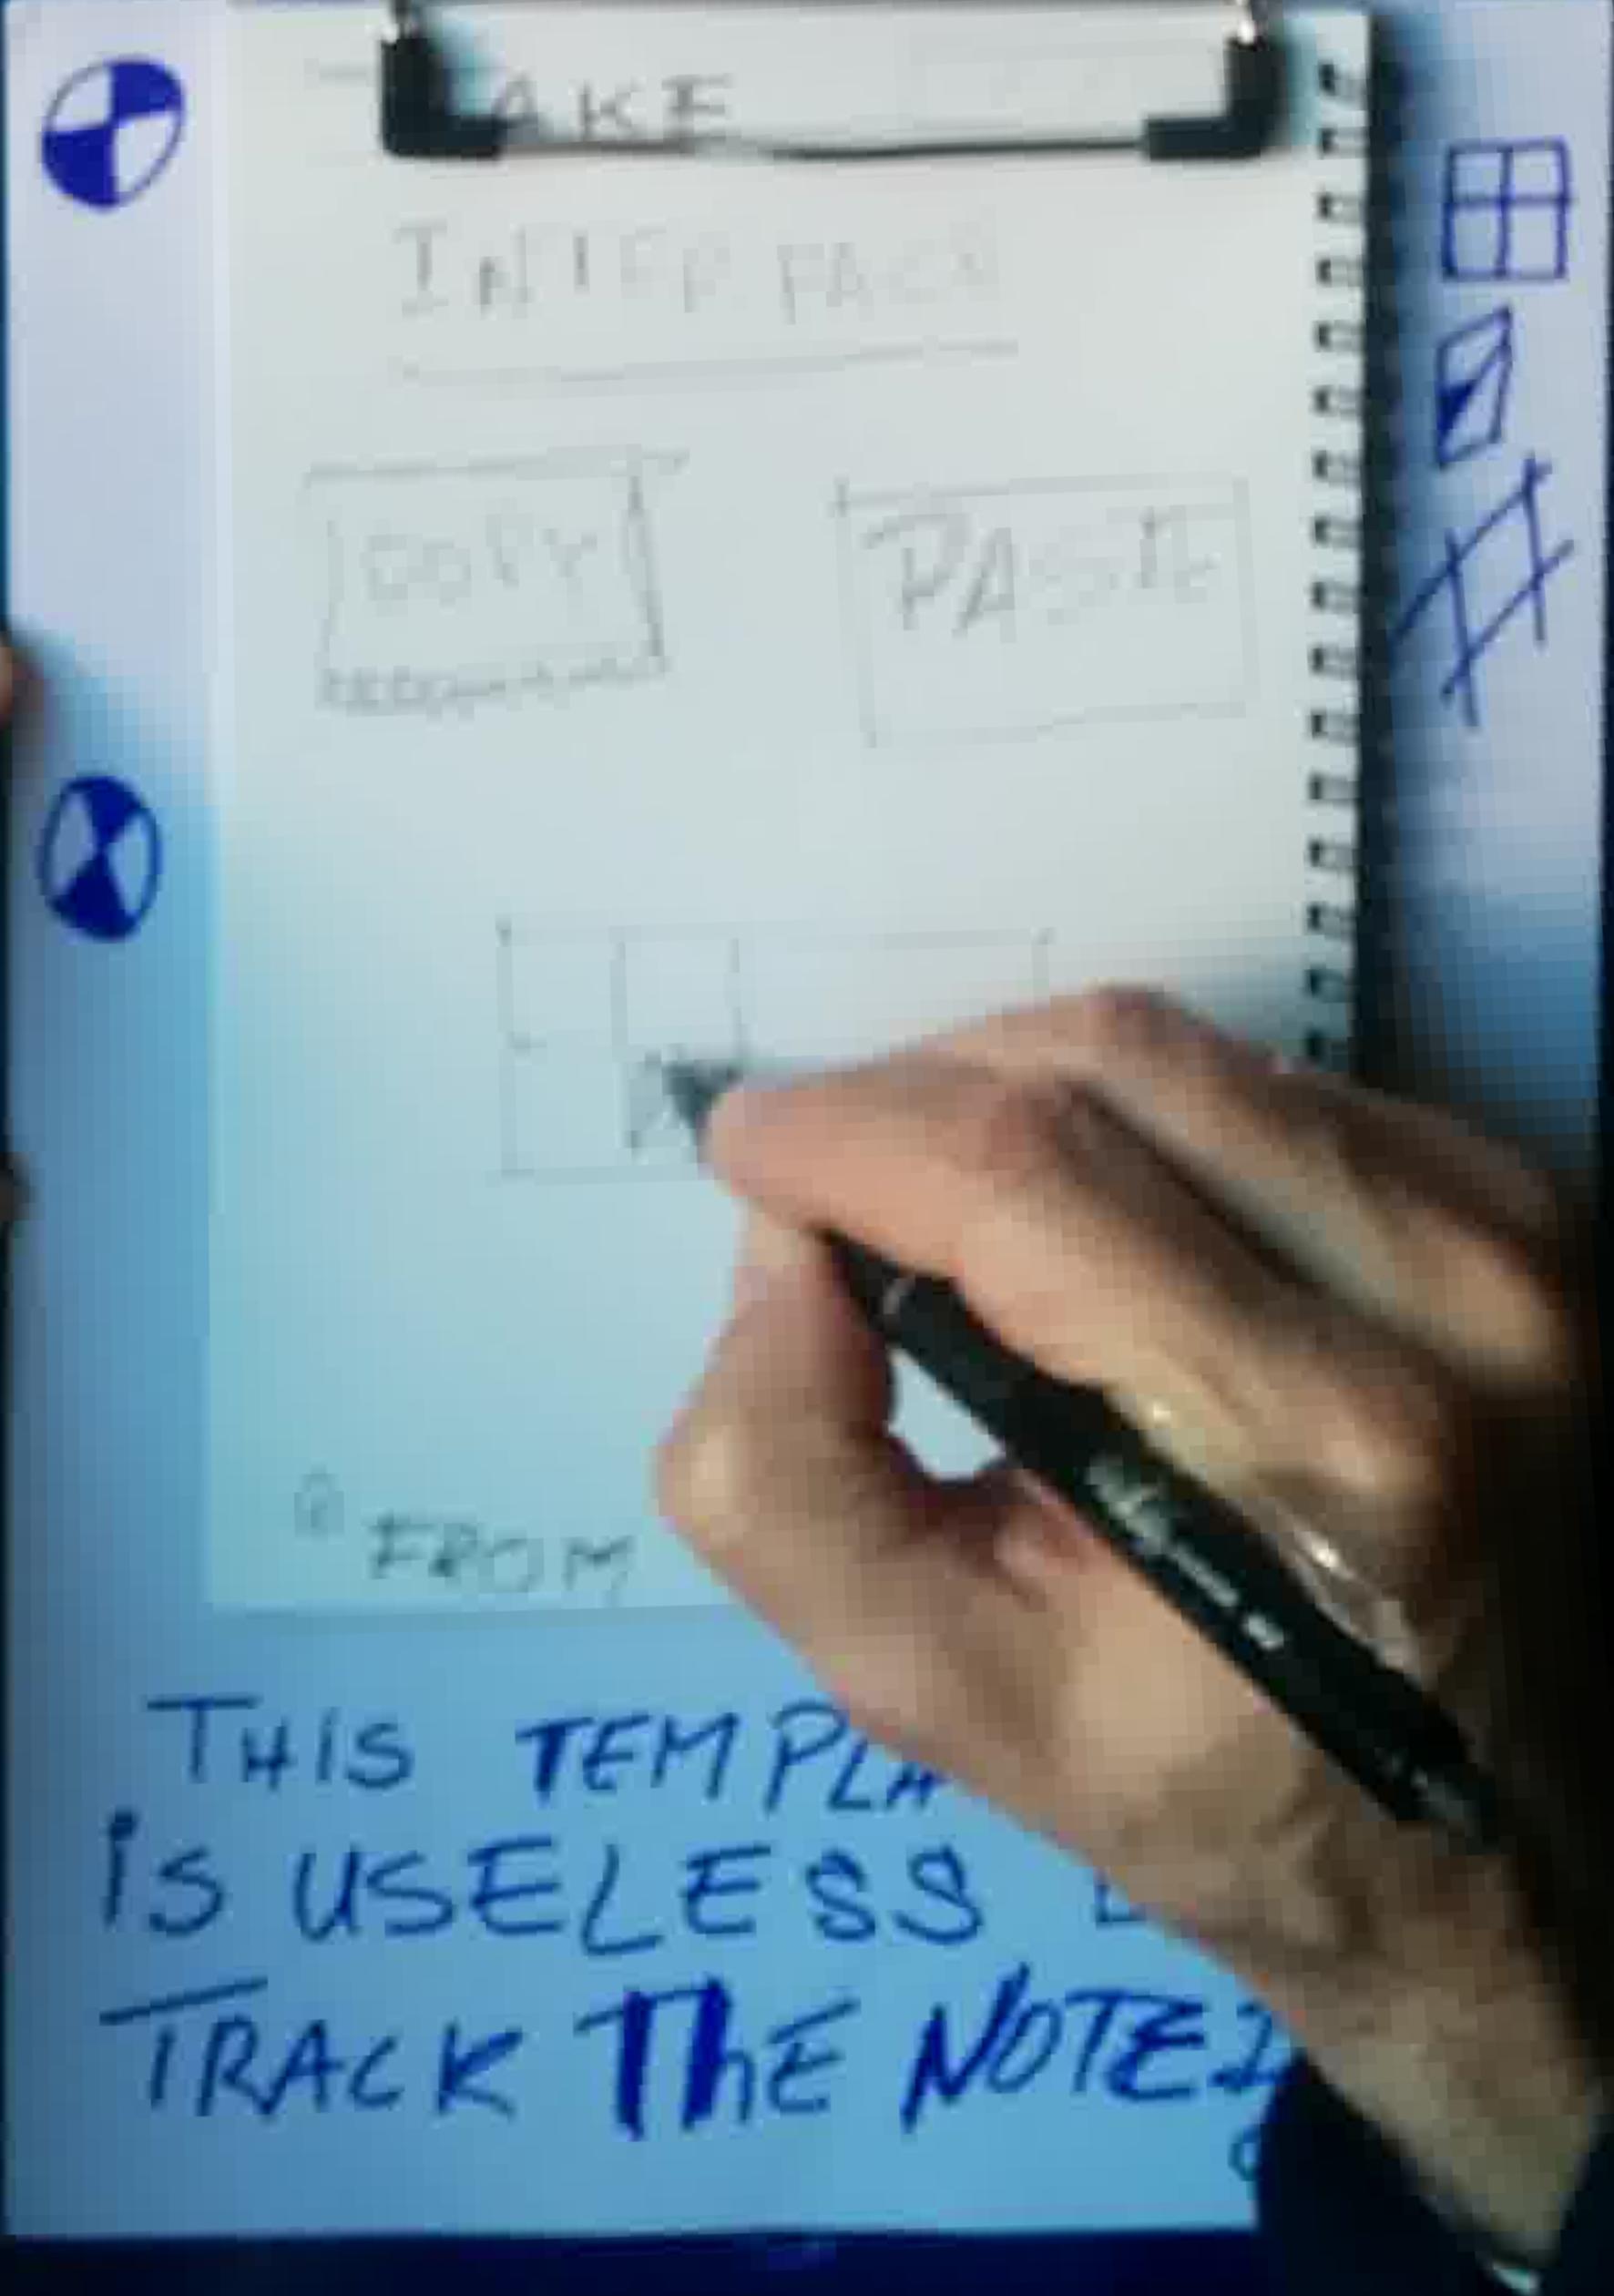 AKE
INTERFACE
COPY
PASTE
FROM
THiS TEMPLA
iS USELESS
TRACK ThE NOTE